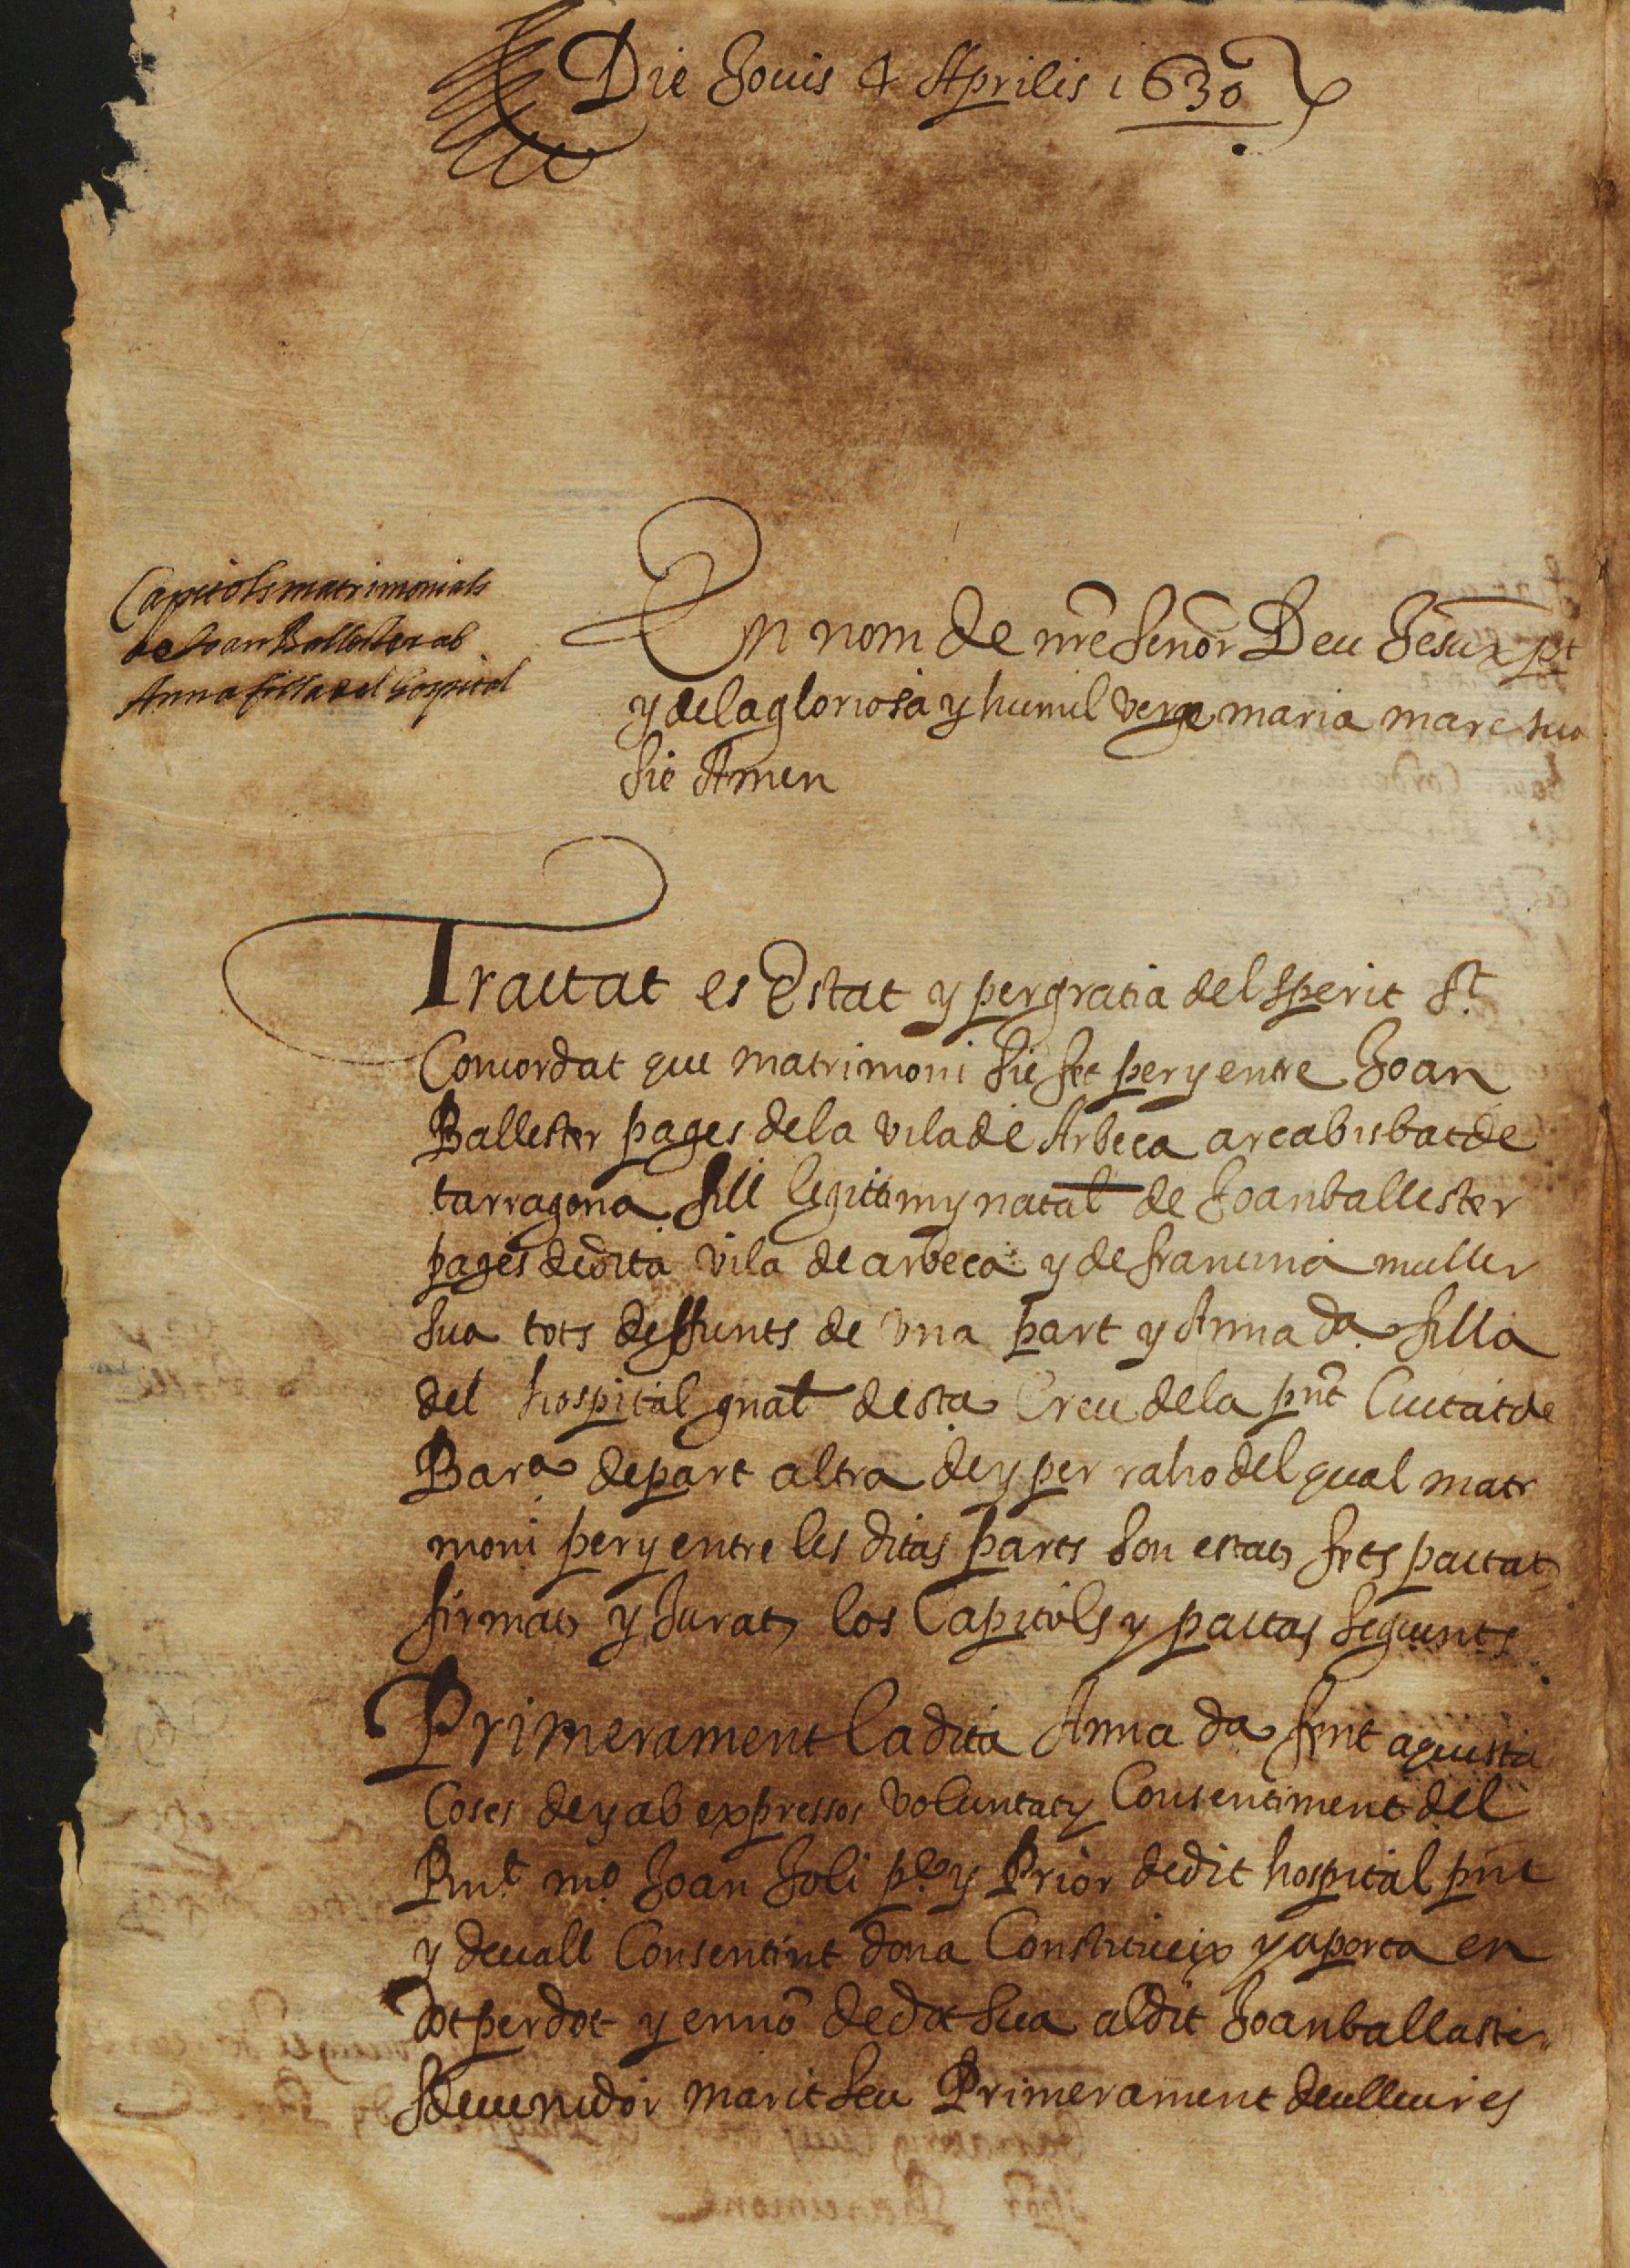 Die Jouis 4 Aprilis 1630
Capitols matrimonials
de Joan Ballester ab
Anna filla del hospital
En nom de nre Senor Deu Jesu xpt
y de la gloriosa y humil verge maria mare sua
sie Amen
Tractat es Estat y per gratia del sperit St.
Concordat que matrimoni sie fet per y entre Joan
Ballester pages de la vila de Arbeca arcabisbat de
tarragona fill legitim y natal de Joan ballester
pages de dita vila de arbeca y de francina muller
sua tots deffunts de vna part y Anna da. filla
del hospital gnal de sta Creu de la pnt Ciutat de
Bara. de part altra de y per raho del qual matr
moni per y entre les ditas parts son estats fets pactats
firmats y jurats los Capitols y pactas seguents
Primerament la dita Anna da fent aquesta
Coses de y ab expressos voluntat y Consentiment del
Rnt. mo. Joan Soli pe. y Prior de dit hospital pnt
y deuall Consentint dona Constitueix y aporta en
dot per dot y en no de dot sua al dit Joan ballaster
sdeuenidor marit seu Primerament de lliures